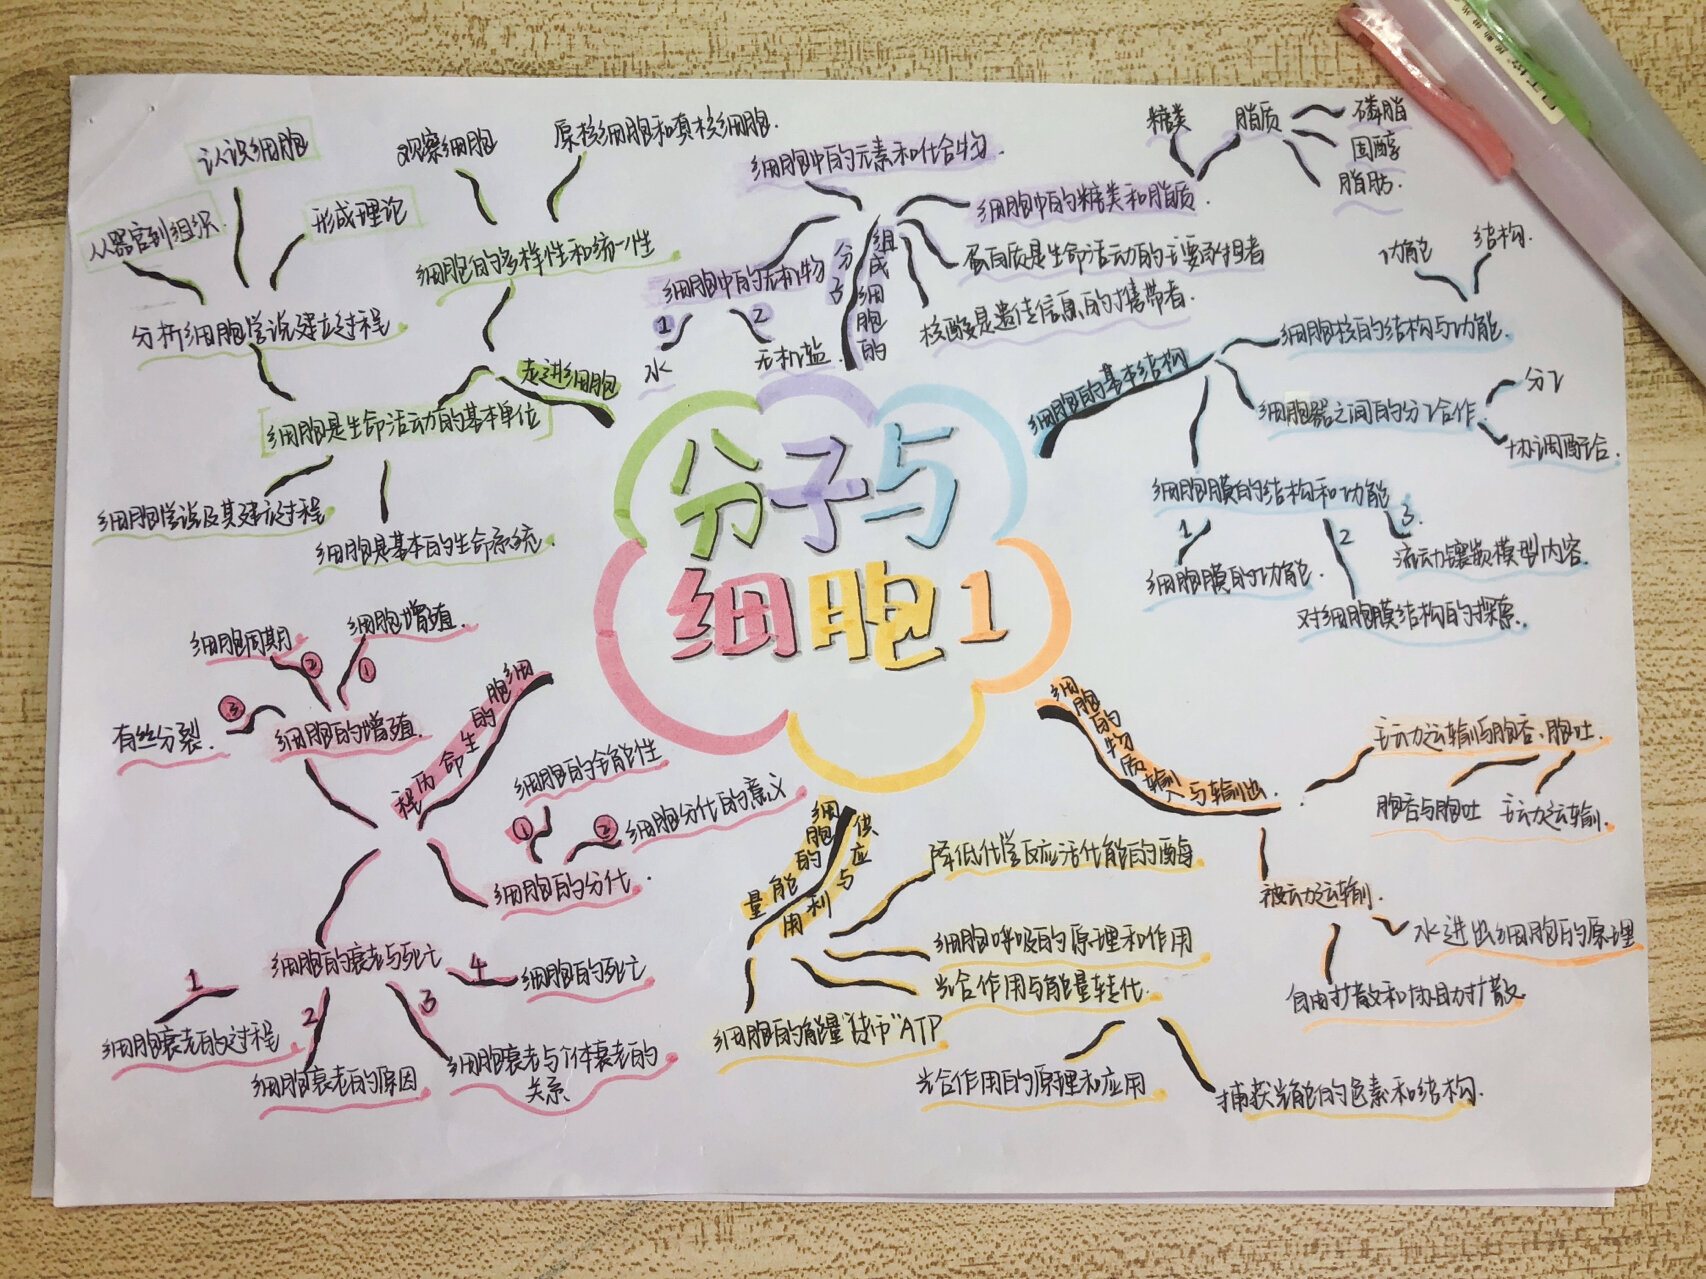 分子与
细胞1
走进细胞
细胞的多样性和统一性
观察细胞
原核细胞和真核细胞.
细胞是生命活动的基本单位
分析细胞学说建立过程
从器官到组织
认识细胞
形成理论
细胞学说及其建立过程
细胞是基本的生命系统.
组成细胞的
分子
细胞中的元素和化合物.
细胞中的糖类和脂质.
糖类
脂质
磷脂
固醇
脂肪.
蛋白质是生命活动的主要承担者
核酸是遗传信息的携带者.
细胞中的无机物
1
水
2
无机盐.
细胞的基本结构
细胞核的结构与功能.
功能
结构.
细胞器之间的分工合作.
分工
协调配合.
细胞膜的结构和功能
1
细胞膜的功能.
2
对细胞膜结构的探索.
3.
流动镶嵌模型内容.
细胞的物质输入与输出.
主动运输与胞吞、胞吐.
胞吞与胞吐
主动运输.
被动运输.
水进出细胞的原理
自由扩散和协助扩散
细胞的
能量
供应与
利用
降低化学反应活化能的酶
细胞呼吸的原理和作用
光合作用与能量转化.
光合作用的原理和应用
捕获光能的色素和结构.
细胞的能量“货币”ATP
细胞的生命历程
细胞的增殖.
①
细胞增殖.
②
细胞周期
③
有丝分裂.
细胞的分化.
①
细胞的全能性
②
细胞分化的意义
细胞的衰老与死亡
1
细胞衰老的过程
2
细胞衰老的原因
3
细胞衰老与个体衰老的
关系.
4
细胞的死亡